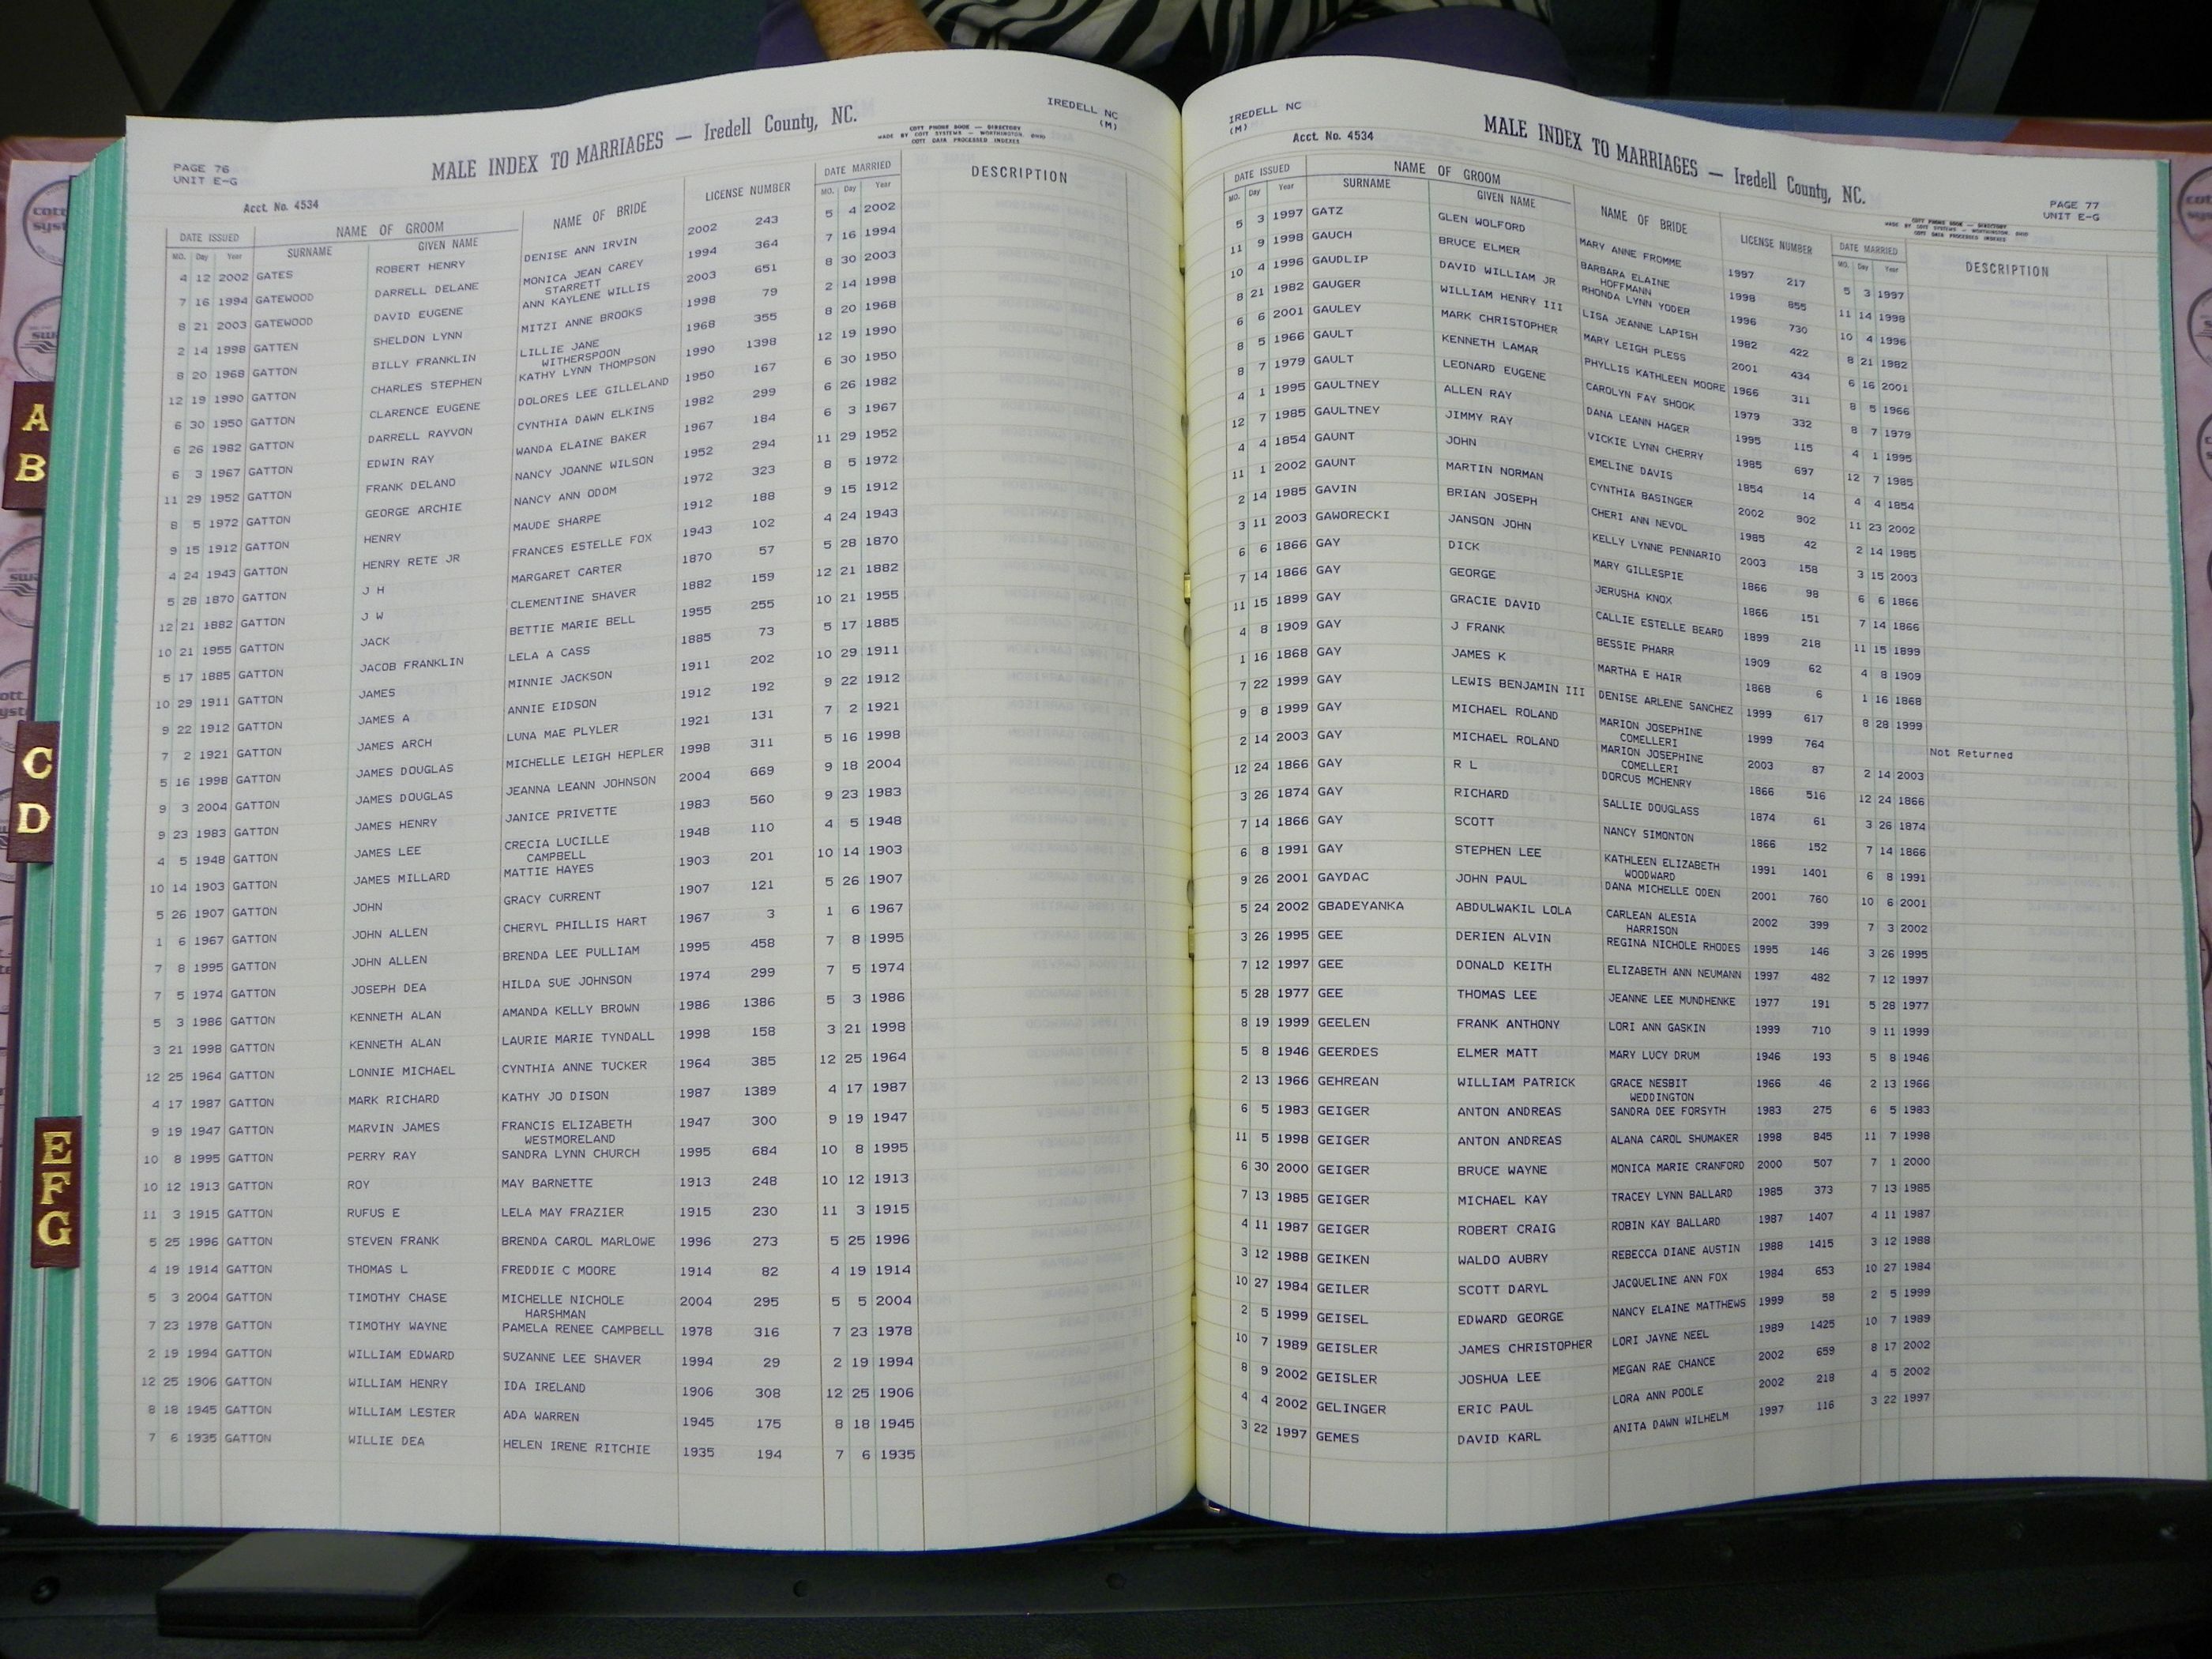 PAGE 76
UNIT E-G
Acct. No. 4534
MALE INDEX TO MARRIAGES — Iredell County, NC.
IREDELL NC
(M)
COTT PHONE BOOK — DIRECTORY
MADE BY COTT SYSTEMS — WORTHINGTON, OHIO
COTT DATA PROCESSED INDEXES
DATE ISSUED NAME OF GROOM NAME OF BRIDE LICENSE NUMBER DATE MARRIED DESCRIPTION
MO. Day Year SURNAME GIVEN NAME MO. Day Year
4 12 2002 GATES ROBERT HENRY DENISE ANN IRVIN 2002 243 5 4 2002
7 16 1994 GATEWOOD DARRELL DELANE MONICA JEAN CAREY 1994 364 7 16 1994
STARRETT
8 21 2003 GATEWOOD DAVID EUGENE ANN KAYLENE WILLIS 2003 651 8 30 2003
2 14 1998 GATTEN SHELDON LYNN MITZI ANNE BROOKS 1998 79 2 14 1998
8 20 1968 GATTON BILLY FRANKLIN LILLIE JANE 1968 355 8 20 1968
WITHERSPOON
12 19 1990 GATTON CHARLES STEPHEN KATHY LYNN THOMPSON 1990 1398 12 19 1990
6 30 1950 GATTON CLARENCE EUGENE DOLORES LEE GILLELAND 1950 167 6 30 1950
6 26 1982 GATTON DARRELL RAYVON CYNTHIA DAWN ELKINS 1982 299 6 26 1982
6 3 1967 GATTON EDWIN RAY WANDA ELAINE BAKER 1967 184 6 3 1967
11 29 1952 GATTON FRANK DELANO NANCY JOANNE WILSON 1952 294 11 29 1952
8 5 1972 GATTON GEORGE ARCHIE NANCY ANN ODOM 1972 323 8 5 1972
9 15 1912 GATTON HENRY MAUDE SHARPE 1912 188 9 15 1912
4 24 1943 GATTON HENRY RETE JR FRANCES ESTELLE FOX 1943 102 4 24 1943
5 28 1870 GATTON J H MARGARET CARTER 1870 57 5 28 1870
12 21 1882 GATTON J W CLEMENTINE SHAVER 1882 159 12 21 1882
10 21 1955 GATTON JACK BETTIE MARIE BELL 1955 255 10 21 1955
5 17 1885 GATTON JACOB FRANKLIN LELA A CASS 1885 73 5 17 1885
10 29 1911 GATTON JAMES MINNIE JACKSON 1911 202 10 29 1911
9 22 1912 GATTON JAMES A ANNIE EIDSON 1912 192 9 22 1912
7 2 1921 GATTON JAMES ARCH LUNA MAE PLYLER 1921 131 7 2 1921
5 16 1998 GATTON JAMES DOUGLAS MICHELLE LEIGH HEPLER 1998 311 5 16 1998
9 3 2004 GATTON JAMES DOUGLAS JEANNA LEANN JOHNSON 2004 669 9 18 2004
9 23 1983 GATTON JAMES HENRY JANICE PRIVETTE 1983 560 9 23 1983
4 5 1948 GATTON JAMES LEE CRECIA LUCILLE 1948 110 4 5 1948
CAMPBELL
10 14 1903 GATTON JAMES MILLARD MATTIE HAYES 1903 201 10 14 1903
5 26 1907 GATTON JOHN GRACY CURRENT 1907 121 5 26 1907
1 6 1967 GATTON JOHN ALLEN CHERYL PHILLIS HART 1967 3 1 6 1967
7 8 1995 GATTON JOHN ALLEN BRENDA LEE PULLIAM 1995 458 7 8 1995
7 5 1974 GATTON JOSEPH DEA HILDA SUE JOHNSON 1974 299 7 5 1974
5 3 1986 GATTON KENNETH ALAN AMANDA KELLY BROWN 1986 1386 5 3 1986
3 21 1998 GATTON KENNETH ALAN LAURIE MARIE TYNDALL 1998 158 3 21 1998
12 25 1964 GATTON LONNIE MICHAEL CYNTHIA ANNE TUCKER 1964 385 12 25 1964
4 17 1987 GATTON MARK RICHARD KATHY JO DISON 1987 1389 4 17 1987
9 19 1947 GATTON MARVIN JAMES FRANCIS ELIZABETH 1947 300 9 19 1947
WESTMORELAND
10 8 1995 GATTON PERRY RAY SANDRA LYNN CHURCH 1995 684 10 8 1995
10 12 1913 GATTON ROY MAY BARNETTE 1913 248 10 12 1913
11 3 1915 GATTON RUFUS E LELA MAY FRAZIER 1915 230 11 3 1915
5 25 1996 GATTON STEVEN FRANK BRENDA CAROL MARLOWE 1996 273 5 25 1996
4 19 1914 GATTON THOMAS L FREDDIE C MOORE 1914 82 4 19 1914
5 3 2004 GATTON TIMOTHY CHASE MICHELLE NICHOLE 2004 295 5 5 2004
HARSHMAN
7 23 1978 GATTON TIMOTHY WAYNE PAMELA RENEE CAMPBELL 1978 316 7 23 1978
2 19 1994 GATTON WILLIAM EDWARD SUZANNE LEE SHAVER 1994 29 2 19 1994
12 25 1906 GATTON WILLIAM HENRY IDA IRELAND 1906 308 12 25 1906
8 18 1945 GATTON WILLIAM LESTER ADA WARREN 1945 175 8 18 1945
7 6 1935 GATTON WILLIE DEA HELEN IRENE RITCHIE 1935 194 7 6 1935
A
B
C
D
E
F
G
IREDELL NC
(M)
Acct. No. 4534
MALE INDEX TO MARRIAGES — Iredell County, NC.
PAGE 77
UNIT E-G
COTT PHONE BOOK — DIRECTORY
MADE BY COTT SYSTEMS — WORTHINGTON, OHIO
COTT DATA PROCESSED INDEXES
DATE ISSUED NAME OF GROOM NAME OF BRIDE LICENSE NUMBER DATE MARRIED DESCRIPTION
MO. Day Year SURNAME GIVEN NAME MO. Day Year
5 3 1997 GATZ GLEN WOLFORD MARY ANNE FROMME 1997 217 5 3 1997
11 9 1998 GAUCH BRUCE ELMER BARBARA ELAINE 1998 855 11 14 1998
HOFFMANN
10 4 1996 GAUDLIP DAVID WILLIAM JR RHONDA LYNN YODER 1996 730 10 4 1996
8 21 1982 GAUGER WILLIAM HENRY III LISA JEANNE LAPISH 1982 422 8 21 1982
6 6 2001 GAULEY MARK CHRISTOPHER MARY LEIGH PLESS 2001 434 6 16 2001
8 5 1966 GAULT KENNETH LAMAR PHYLLIS KATHLEEN MOORE 1966 311 8 5 1966
8 7 1979 GAULT LEONARD EUGENE CAROLYN FAY SHOOK 1979 332 8 7 1979
4 1 1995 GAULTNEY ALLEN RAY DANA LEANN HAGER 1995 115 4 1 1995
12 7 1985 GAULTNEY JIMMY RAY VICKIE LYNN CHERRY 1985 697 12 7 1985
4 4 1854 GAUNT JOHN EMELINE DAVIS 1854 14 4 4 1854
11 1 2002 GAUNT MARTIN NORMAN CYNTHIA BASINGER 2002 902 11 23 2002
2 14 1985 GAVIN BRIAN JOSEPH CHERI ANN NEVOL 1985 42 2 14 1985
3 11 2003 GAWORECKI JANSON JOHN KELLY LYNNE PENNARIO 2003 158 3 15 2003
6 6 1866 GAY DICK MARY GILLESPIE 1866 98 6 6 1866
7 14 1866 GAY GEORGE JERUSHA KNOX 1866 151 7 14 1866
11 15 1899 GAY GRACIE DAVID CALLIE ESTELLE BEARD 1899 218 11 15 1899
4 8 1909 GAY J FRANK BESSIE PHARR 1909 62 4 8 1909
1 16 1868 GAY JAMES K MARTHA E HAIR 1868 6 1 16 1868
7 22 1999 GAY LEWIS BENJAMIN III DENISE ARLENE SANCHEZ 1999 617 8 28 1999
9 8 1999 GAY MICHAEL ROLAND MARION JOSEPHINE 1999 764 Not Returned
COMELLERI
2 14 2003 GAY MICHAEL ROLAND MARION JOSEPHINE 2003 87 2 14 2003
COMELLERI
12 24 1866 GAY R L DORCUS MCHENRY 1866 516 12 24 1866
3 26 1874 GAY RICHARD SALLIE DOUGLASS 1874 61 3 26 1874
7 14 1866 GAY SCOTT NANCY SIMONTON 1866 152 7 14 1866
6 8 1991 GAY STEPHEN LEE KATHLEEN ELIZABETH 1991 1401 6 8 1991
WOODWARD
9 26 2001 GAYDAC JOHN PAUL DANA MICHELLE ODEN 2001 760 10 6 2001
5 24 2002 GBADEYANKA ABDULWAKIL LOLA CARLEAN ALESIA 2002 399 7 3 2002
HARRISON
3 26 1995 GEE DERIEN ALVIN REGINA NICHOLE RHODES 1995 146 3 26 1995
7 12 1997 GEE DONALD KEITH ELIZABETH ANN NEUMANN 1997 482 7 12 1997
5 28 1977 GEE THOMAS LEE JEANNE LEE MUNDHENKE 1977 191 5 28 1977
8 19 1999 GEELEN FRANK ANTHONY LORI ANN GASKIN 1999 710 9 11 1999
5 8 1946 GEERDES ELMER MATT MARY LUCY DRUM 1946 193 5 8 1946
2 13 1966 GEHREAN WILLIAM PATRICK GRACE NESBIT 1966 46 2 13 1966
WEDDINGTON
6 5 1983 GEIGER ANTON ANDREAS SANDRA DEE FORSYTH 1983 275 6 5 1983
11 5 1998 GEIGER ANTON ANDREAS ALANA CAROL SHUMAKER 1998 845 11 7 1998
6 30 2000 GEIGER BRUCE WAYNE MONICA MARIE CRANFORD 2000 507 7 1 2000
7 13 1985 GEIGER MICHAEL KAY TRACEY LYNN BALLARD 1985 373 7 13 1985
4 11 1987 GEIGER ROBERT CRAIG ROBIN KAY BALLARD 1987 1407 4 11 1987
3 12 1988 GEIKEN WALDO AUBRY REBECCA DIANE AUSTIN 1988 1415 3 12 1988
10 27 1984 GEILER SCOTT DARYL JACQUELINE ANN FOX 1984 653 10 27 1984
2 5 1999 GEISEL EDWARD GEORGE NANCY ELAINE MATTHEWS 1999 58 2 5 1999
10 7 1989 GEISLER JAMES CHRISTOPHER LORI JAYNE NEEL 1989 1425 10 7 1989
8 9 2002 GEISLER JOSHUA LEE MEGAN RAE CHANCE 2002 659 8 17 2002
4 4 2002 GELINGER ERIC PAUL LORA ANN POOLE 2002 218 4 5 2002
3 22 1997 GEMES DAVID KARL ANITA DAWN WILHELM 1997 116 3 22 1997